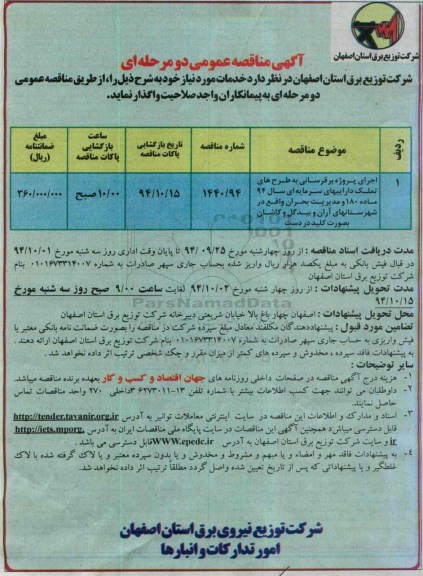 شرکت توزیع برق استان اصفهان
آگهی مناقصه عمومی دو مرحله ای
شرکت توزیع برق استان اصفهان در نظر دارد خدمات مورد نیاز خود به شرح ذیل را، از طریق مناقصه عمومی
دو مرحله ای به پیمانکاران واجد صلاحیت واگذار نماید.
ردیف | موضوع مناقصه | شماره مناقصه | تاریخ بازگشایی پاکات مناقصه | ساعت بازگشایی پاکات مناقصه | مبلغ ضمانتنامه (ریال)
۱ | اجرای پروژه برقرسانی به طرح های | ۱۴۴۰/۹۴ | ۹۴/۱۰/۱۵ | ۱۰/۰۰ صبح | ۳۶۰/۰۰۰/۰۰۰
تملک داراییهای سرمایه ای سال ۹۴
ماده ۱۸۰ و مدیریت بحران واقع در
شهرستانهای آران و بیدگل و کاشان
بصورت کلید در دست
مدت دریافت اسناد مناقصه : از روز چهارشنبه مورخ ۹۴/۰۹/۲۵ تا پایان وقت اداری روز سه شنبه مورخ ۹۴/۱۰/۰۱
در قبال فیش بانکی به مبلغ یکصد هزار ریال واریز شده بحساب جاری سپهر صادرات به شماره ۰۱۰۱۶۷۳۳۱۴۰۰۷ بنام
شرکت توزیع برق استان اصفهان
مدت تحویل پیشنهادات : از روز چهار شنبه مورخ ۹۴/۱۰/۰۲ لغایت ساعت ۹/۰۰ صبح روز سه شنبه مورخ
۹۴/۱۰/۱۵
ParsNamadData
محل تحویل پیشنهادات : اصفهان چهار باغ بالا خیابان شریعتی دبیرخانه شرکت توزیع برق استان اصفهان
تضامین مورد قبول : پیشنهاددهندگان مکلفند معادل مبلغ سپرده شرکت در مناقصه را بصورت ضمانت نامه بانکی معتبر یا
فیش واریزی به حساب جاری سپهر صادرات به شماره ۰۱۰۱۶۷۳۳۱۴۰۰۷ بنام شرکت توزیع برق استان اصفهان ارائه دهند .
به پیشنهادات فاقد سپرده ، مخدوش و سپرده های کمتر از میزان مقرر و چک شخصی ترتیب اثر داده نخواهد شد .
سایر توضیحات :
۱- هزینه درج آگهی مناقصه در صفحات داخلی روزنامه های جهان اقتصاد و کسب و کار بعهده برنده مناقصه میباشد.
۲- داوطلبان می توانند جهت کسب اطلاعات بیشتر با شماره تلفن ۱۳-۳۶۲۷۳۰۱۱ داخلی ۲۷۰ واحد مناقصات تماس
حاصل نمایند.
۳- اسناد و مدارک و اطلاعات این مناقصه در سایت اینترنتی معاملات توانیر به آدرس http://tender.tavanir.org.ir
قابل دسترسی میباشد همچنین آگهی این مناقصات در سایت پایگاه ملی مناقصات ایران به آدرس http://iets.mporg.
ir و سایت شرکت توزیع برق استان اصفهان به آدرس WWW.epedc.ir قابل دسترسی می باشد .
۴- به پیشنهادات فاقد مهر و امضاء و یا مبهم و مشروط و مخدوش و یا بدون سپرده معتبر و یا لاک گرفته شده با لاک
غلطگیر و یا پیشنهاداتی که پس از تاریخ تعیین شده واصل گردد مطلقا ترتیب اثر داده نخواهد شد.
شرکت توزیع نیروی برق استان اصفهان
امور تدارکات و انبارها